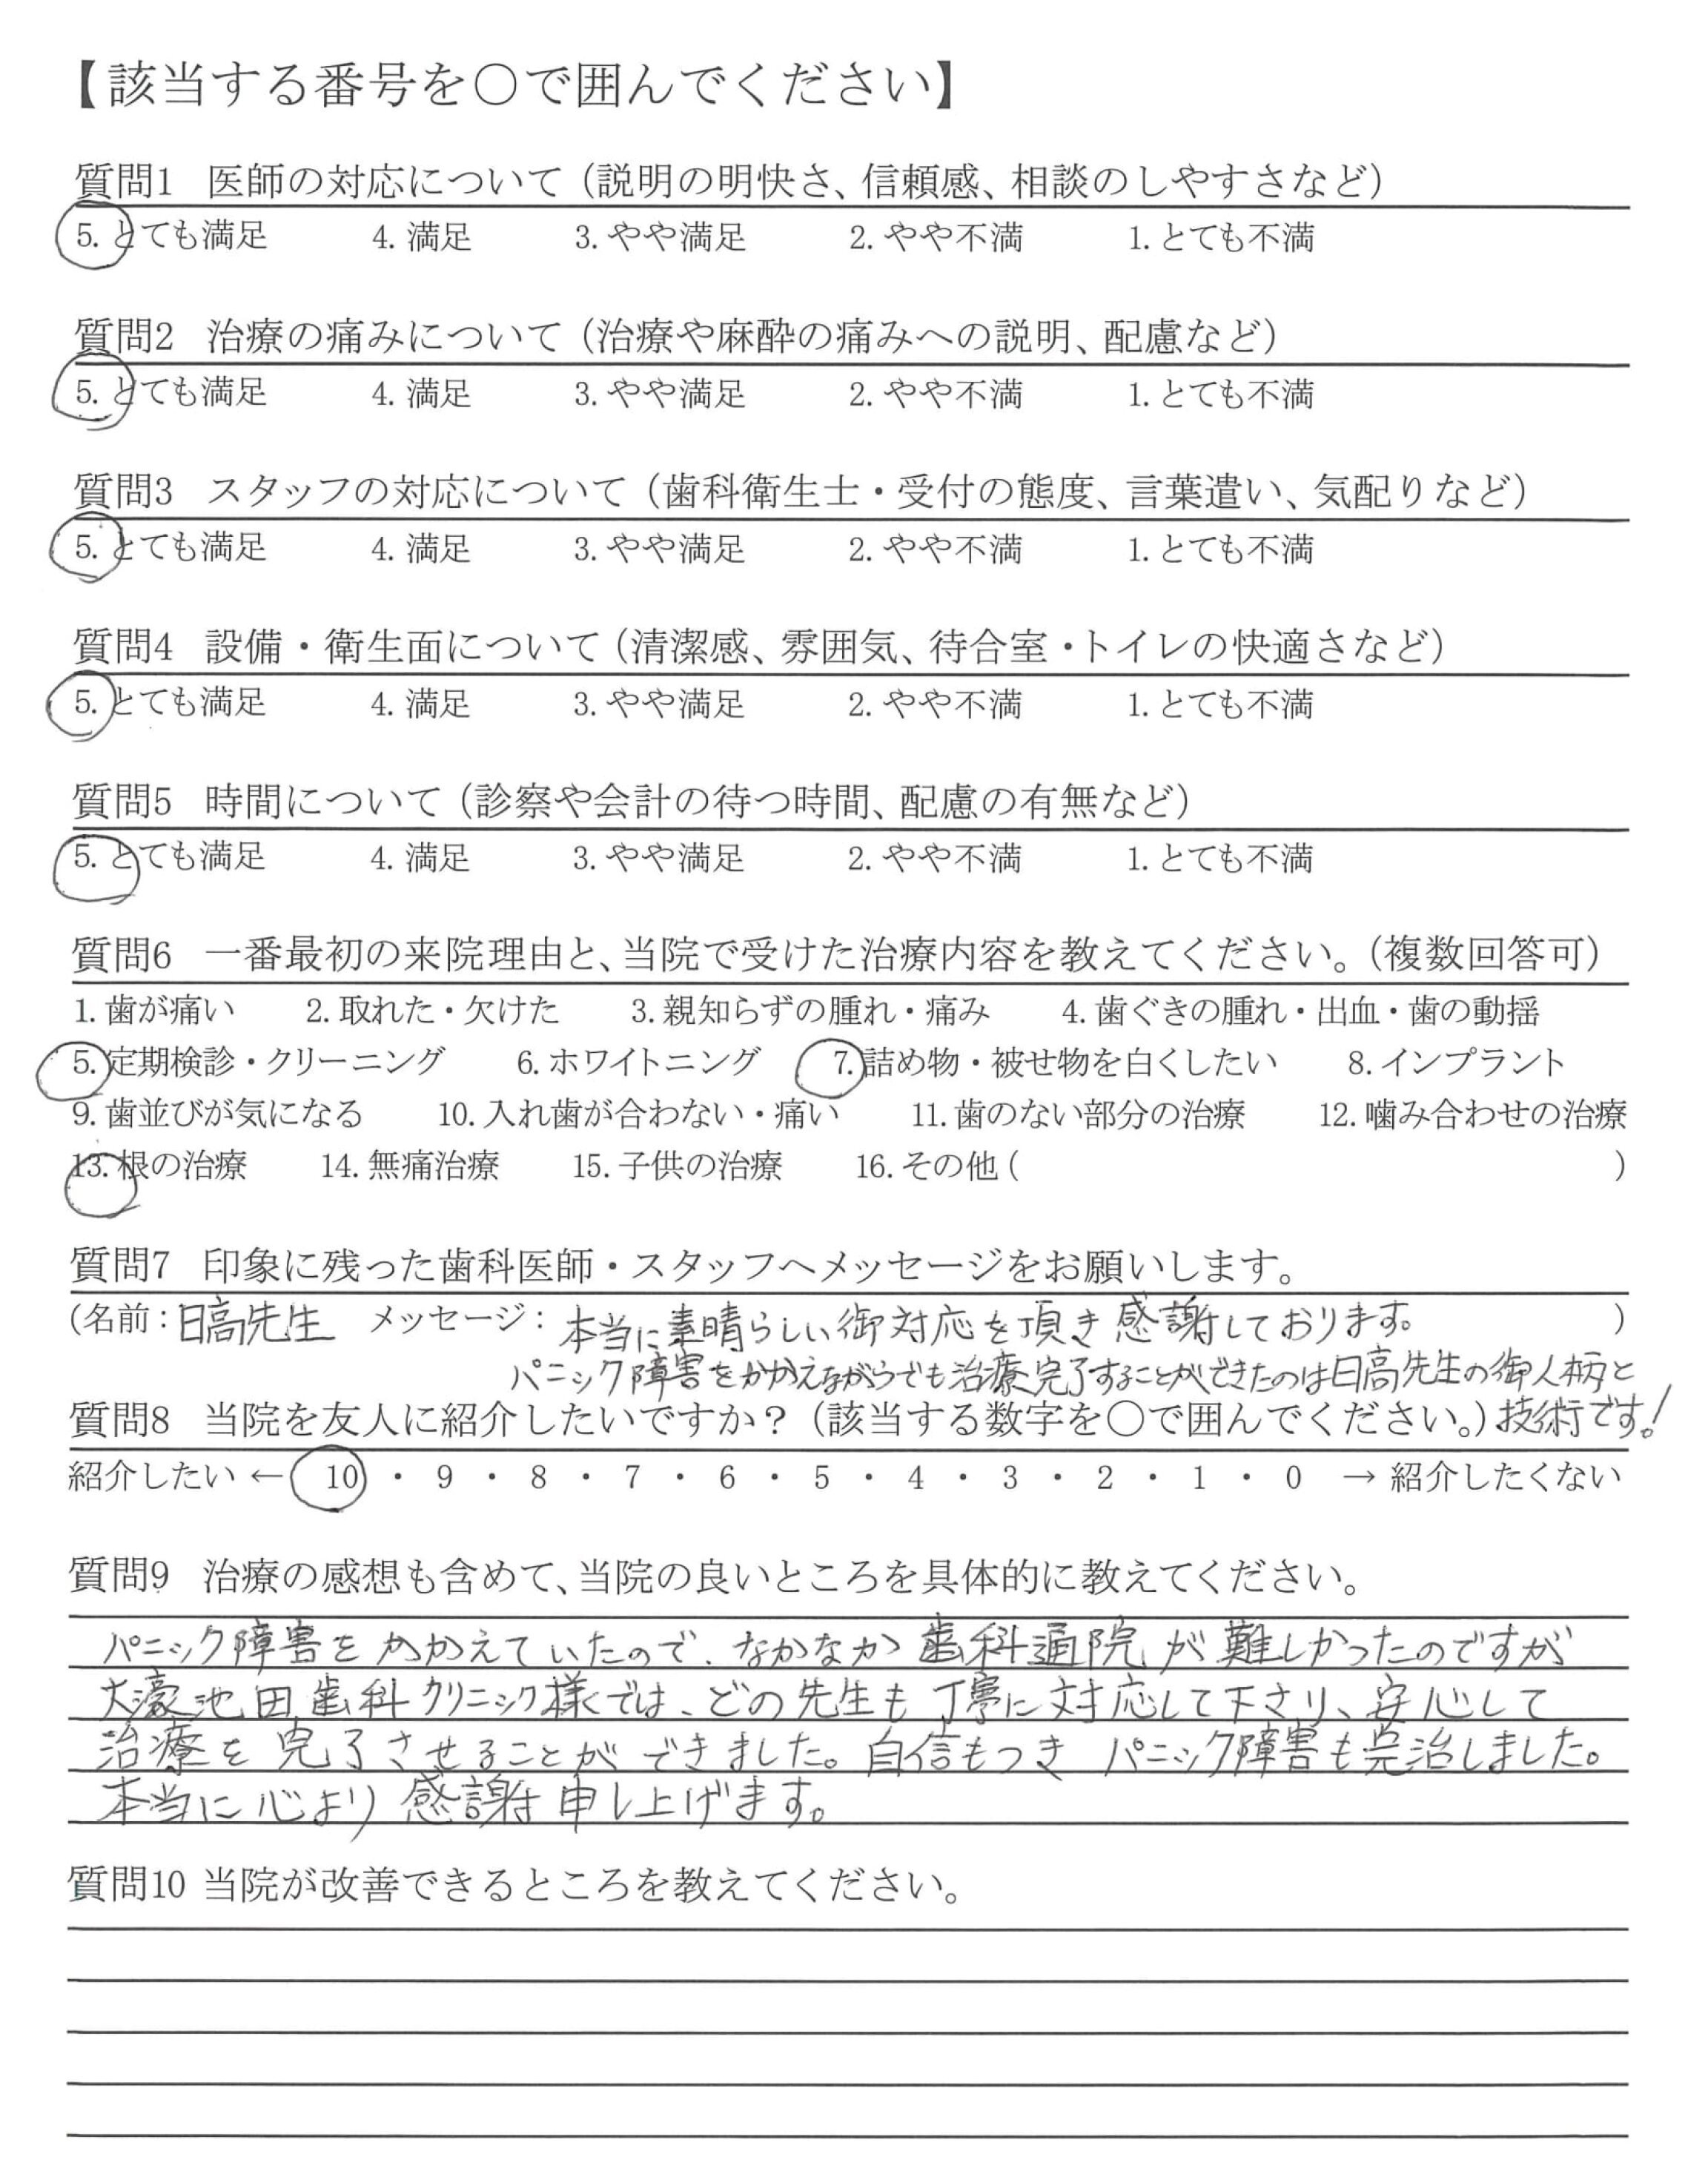 【該当する番号を○で囲んでください】
質問1 医師の対応について（説明の明快さ、信頼感、相談のしやすさなど）
5. とても満足 4. 満足 3. やや満足 2. やや不満 1. とても不満
質問2 治療の痛みについて（治療や麻酔の痛みへの説明、配慮など）
5. とても満足 4. 満足 3. やや満足 2. やや不満 1. とても不満
質問3 スタッフの対応について（歯科衛生士・受付の態度、言葉遣い、気配りなど）
5. とても満足 4. 満足 3. やや満足 2. やや不満 1. とても不満
質問4 設備・衛生面について（清潔感、雰囲気、待合室・トイレの快適さなど）
5. とても満足 4. 満足 3. やや満足 2. やや不満 1. とても不満
質問5 時間について（診察や会計の待つ時間、配慮の有無など）
5. とても満足 4. 満足 3. やや満足 2. やや不満 1. とても不満
質問6 一番最初の来院理由と、当院で受けた治療内容を教えてください。（複数回答可）
1. 歯が痛い 2. 取れた・欠けた 3. 親知らずの腫れ・痛み 4. 歯ぐきの腫れ・出血・歯の動揺
5. 定期検診・クリーニング 6. ホワイトニング 7. 詰め物・被せ物を白くしたい 8. インプラント
9. 歯並びが気になる 10. 入れ歯が合わない・痛い 11. 歯のない部分の治療 12. 噛み合わせの治療
13. 根の治療 14. 無痛治療 15. 子供の治療 16. その他（ ）
質問7 印象に残った歯科医師・スタッフへメッセージをお願いします。
（名前：日高先生 メッセージ：本当に素晴らしい御対応を頂き感謝しております。 ）
パニック障害をかかえながらでも治療完了することができたのは日高先生の御人柄と
技術です！
質問8 当院を友人に紹介したいですか？（該当する数字を○で囲んでください。）
紹介したい ← 10 ・ 9 ・ 8 ・ 7 ・ 6 ・ 5 ・ 4 ・ 3 ・ 2 ・ 1 ・ 0 → 紹介したくない
質問9 治療の感想も含めて、当院の良いところを具体的に教えてください。
パニック障害をかかえていたので、なかなか歯科通院が難しかったのですが
大濠池田歯科クリニック様では、どの先生も丁寧に対応して下さり、安心して
治療を完了させることができました。自信もつきパニック障害も完治しました。
本当に心より感謝申し上げます。
質問10 当院が改善できるところを教えてください。